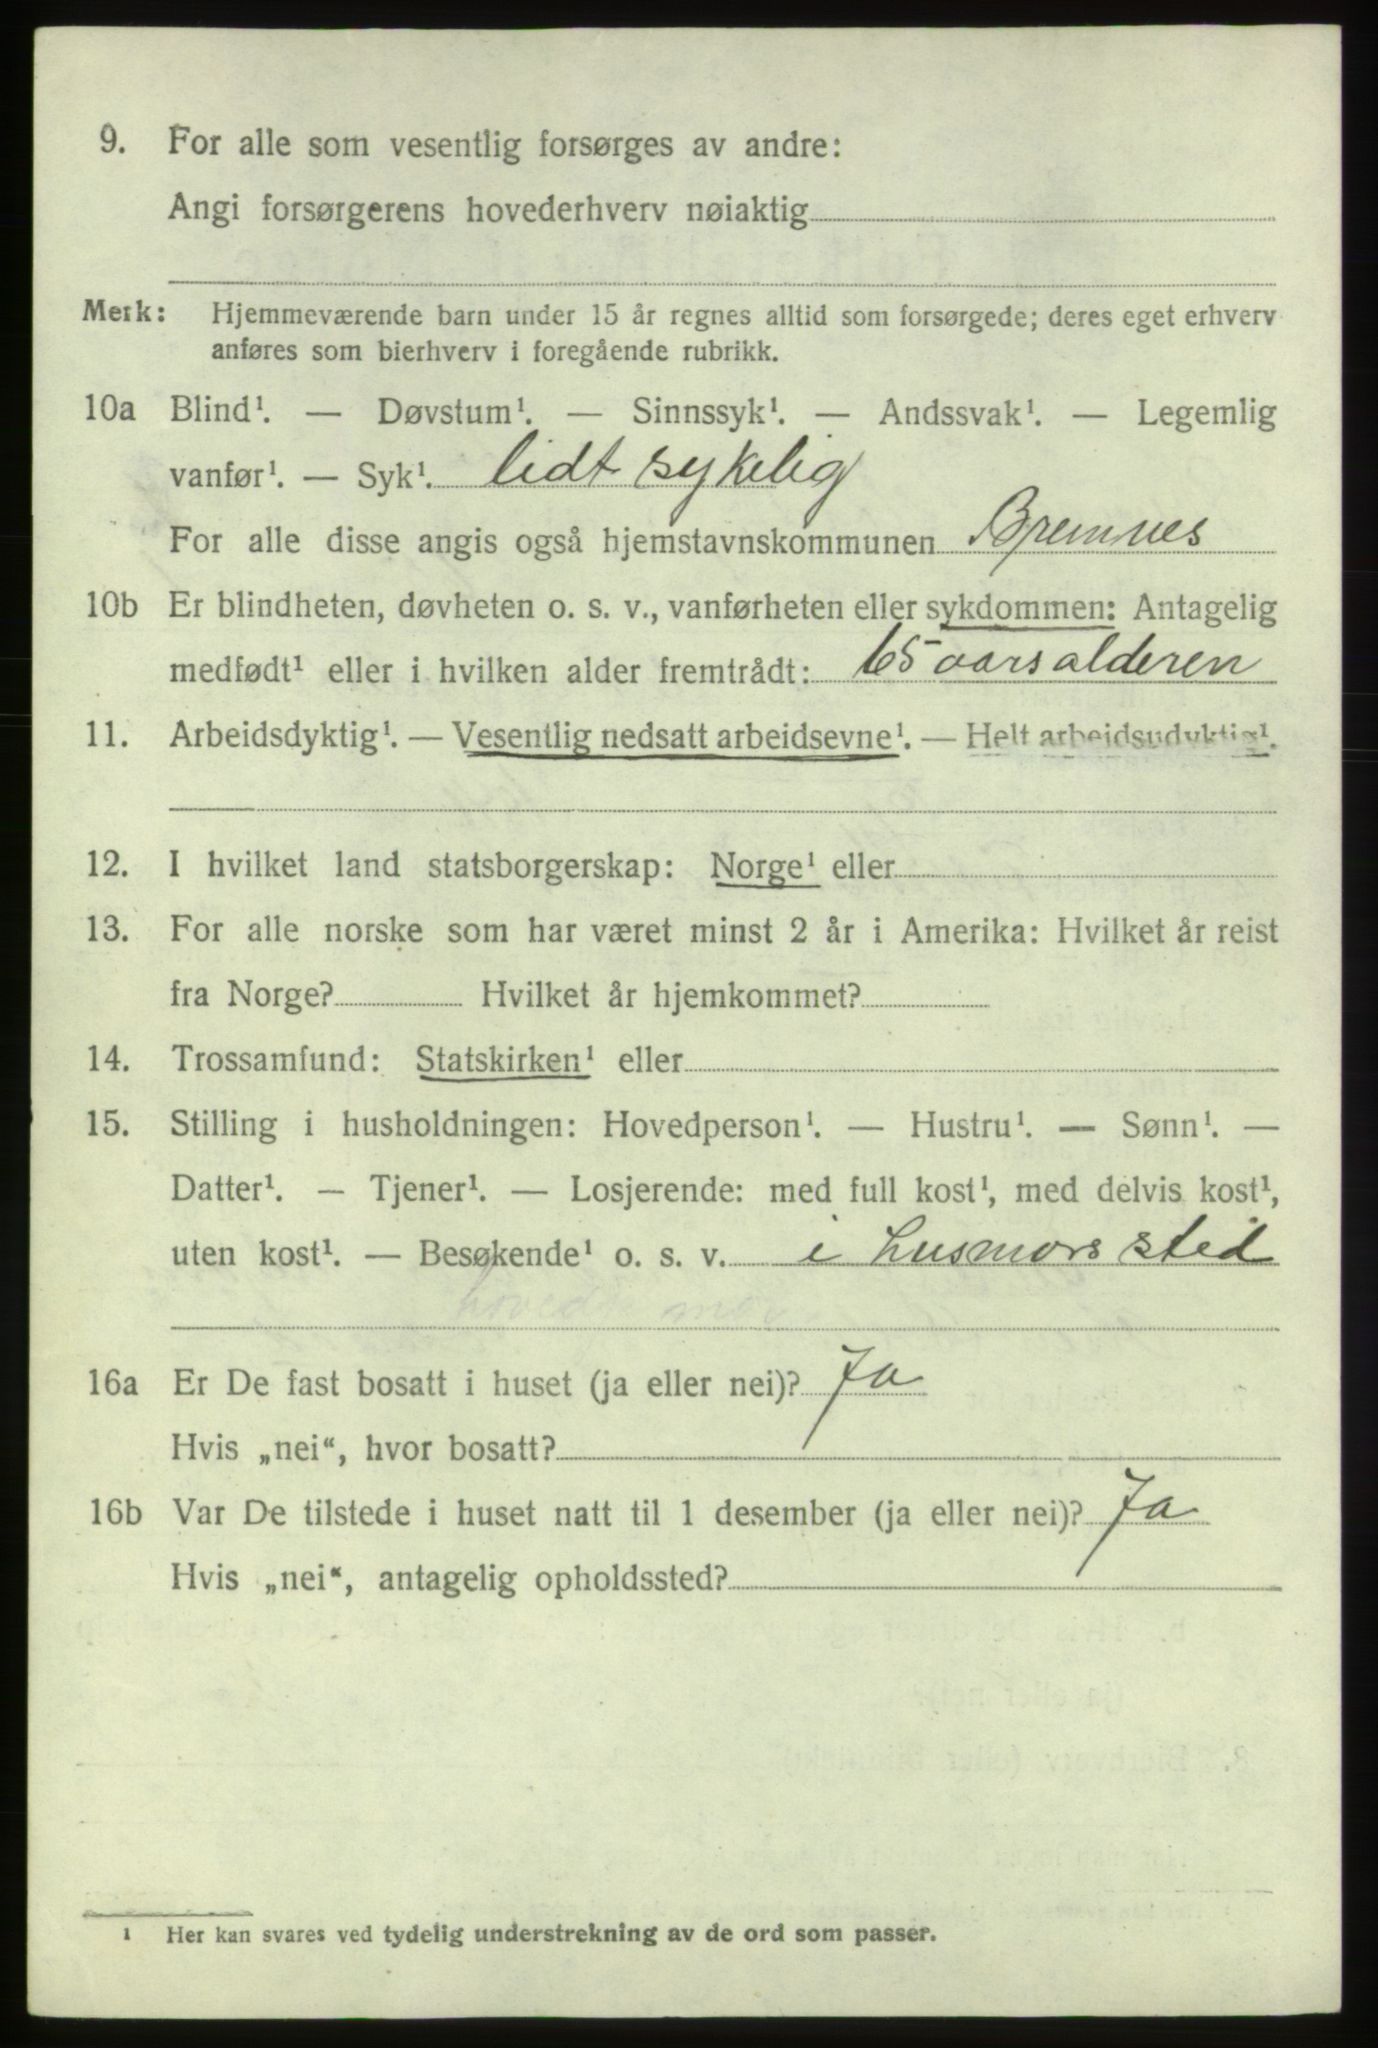 9. For alle som vesentlig forsørges av andre:
Angi forsørgerens hovederhverv nøiaktig
Merk: Hjemmeværende barn under 15 år regnes alltid som forsørgede; deres eget erhverv
anføres som bierhverv i foregående rubrikk.
10a Blind¹. — Døvstum¹. — Sinnssyk¹. — Andssvak¹. — Legemlig
vanfør¹. — Syk¹. lidt sykelig
For alle disse angis også hjemstavnskommunen Bremnes
10b Er blindheten, døvheten o. s. v., vanførheten eller sykdommen: Antagelig
medfødt¹ eller i hvilken alder fremtrådt: 65 aarsalderen
11. Arbeidsdyktig¹. — Vesentlig nedsatt arbeidsevne¹. — Helt arbeidsudyktig¹.
12. I hvilket land statsborgerskap: Norge¹ eller
13. For alle norske som har været minst 2 år i Amerika: Hvilket år reist
fra Norge? Hvilket år hjemkommet?
14. Trossamfund: Statskirken¹ eller
15. Stilling i husholdningen: Hovedperson¹. — Hustru¹. — Sønn¹. —
Datter¹. — Tjener¹. — Losjerende: med full kost¹, med delvis kost¹,
uten kost¹. — Besøkende¹ o. s. v. i husmors sted
16a Er De fast bosatt i huset (ja eller nei)? Ja
Hvis „nei“, hvor bosatt?
16b Var De tilstede i huset natt til 1 desember (ja eller nei)? Ja
Hvis „nei“, antagelig opholdssted?
¹ Her kan svares ved tydelig understrekning av de ord som passer.